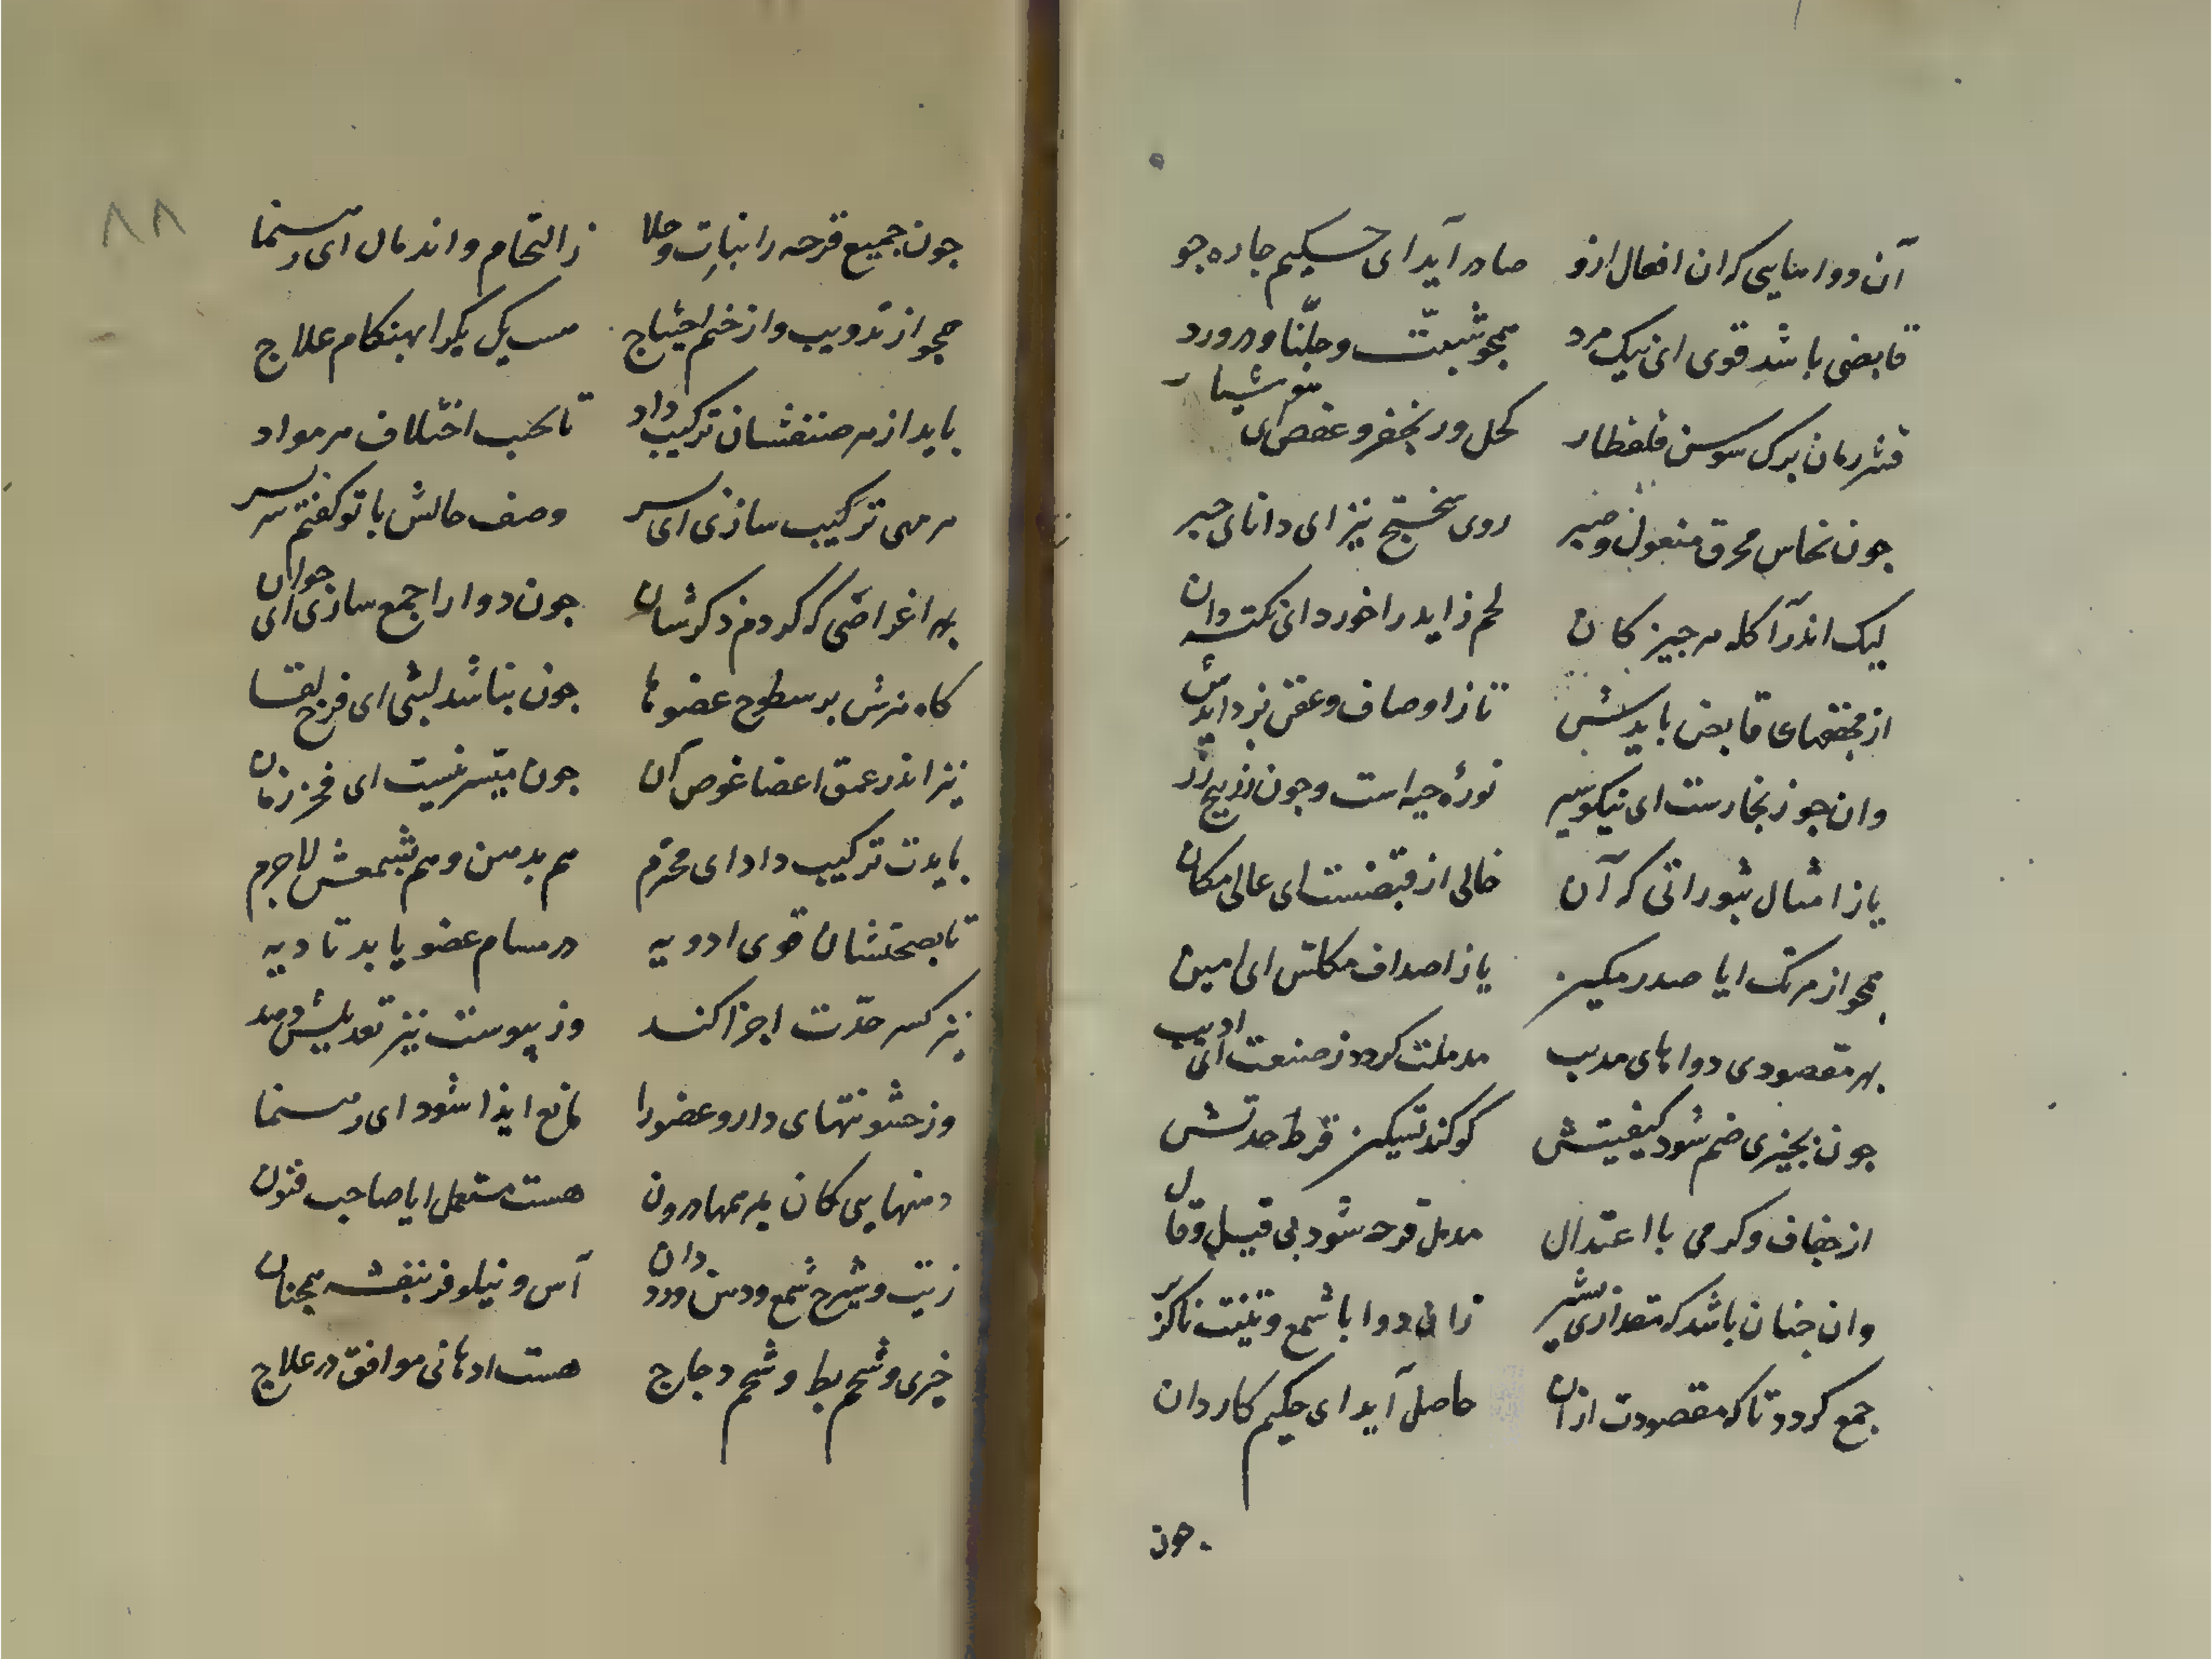 آن دوا هایی که ان افعال ازو صادر آید ای حکیم جاره جو
قابضی باشد قوی ای نیک مرد همجو شبت و جلنا و درورد
قشر رمان برک سوسن قلقطار کحل و زنجفر و عفص ای هوشیار
جون نحاس محرق مغول و خبیر روی سختج نیز ای دانای
لیک اندر آکله هر جیز کان لحم زاید را خورد ای نکته دان
از مجففهای قابض باید تا ز اوصاف و عفن بزدایدش
وان جو زنجارست ای نیکو سیر نوره حیه است و جون زرنیخ زر
یا ز امثال بثوراتی که آن خالی از قبضست ای عالی مکان
همجو از مرتک ایا صدر مکین یا ز اصداف مکلس ای امین
بهر مقصودی دواهای مدیب مدملت کردد ز صنعت ای ادیب
جون بجیزی ضم شود کیفیتش کو کند تسکین فرط حدتش
از جفاف و کرمی با اعتدال مدمل قرحه شود بی قیل و قال
وان جنان باشد که مقداری زان دوا با شمع و زیتت ناکزیر
جمع کردد تا که مقصودت ازان حاصل آید ای حکیم کاردان
جون
۸۸
جون جمیع قرحه را انبات و جلا ز التحام و اندمال ای رهنما
همجو از تدویب و از ختم احتیاج هست یک یک را بهنکام علاج
باید از هر صنفشان ترکیب داد تا بحسب اختلاف هر مواد
مرهمی ترکیب سازی ای پسر وصف حالش با تو کفتم سر بسر
بهر اغراضی که کردم ذکرشان جون دوا را جمع سازی ای جوان
کاه نرش بر سطوح عضوها جون نباشد لبثی ای فرخ لقا
نیز اندر عمق اعضا غوص آن جون میسر نیست ای فخر زمان
بایدت ترکیب داد ای محترم هم بدهن و هم بشمعش لاجرم
تا بصحتشان قوی ادویه در مسام عضو یابد تادیه
نیز کسر حدت اجزا کند وز یبوست نیز تعدیلش دهد
وز خشونتهای دارو عضو را مانع ایذا شود ای رهنما
دهنهایی کان بمرهمها درون هست مستعمل ایا صاحب فنون
زیت و شیرج شمع و دهن ورد دان آس و نیلوفر بنفشه همجنان
خیری و شحم بط و شحم دجاج هست ادهانی موافق در علاج